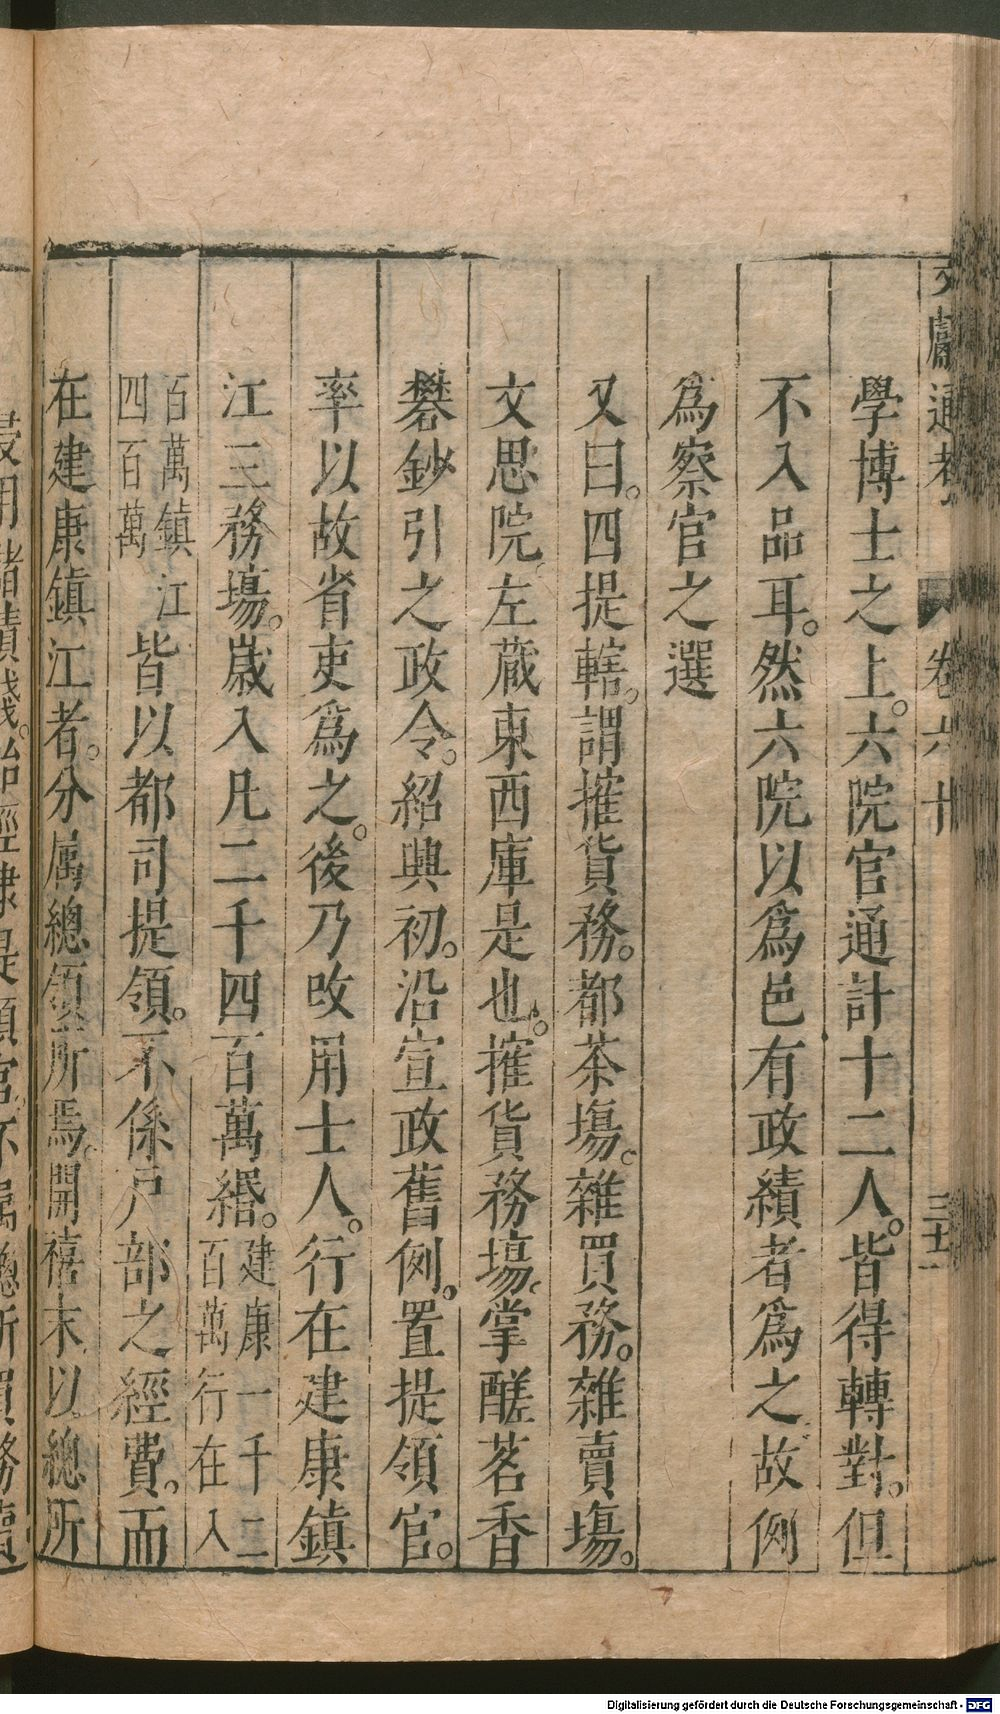 文獻通考 卷六十 三十一
學博士之上。六院官通計十二人。皆得轉對。但
不入品耳。然六院以爲邑有政績者爲之故例
爲察官之選
又曰。四提轄。謂搉貨務。都茶塲。雜買務。雜賣塲。
文思院。左藏東西庫是也。搉貨務塲。掌醝茗香
礬鈔引之政令。紹興初。沿宣政舊例。置提領官。
率以故省吏爲之。後乃改用士人。行在建康鎮
江三務塲。歲入凡二千四百萬緡。建康一千二百萬行在八
百萬鎮江四百萬皆以都司提領。不係戶部之經費。而
在建康鎮江者。分属總領所焉。開禧末以總所
Digitalisierung gefördert durch die Deutsche Forschungsgemeinschaft - DFG